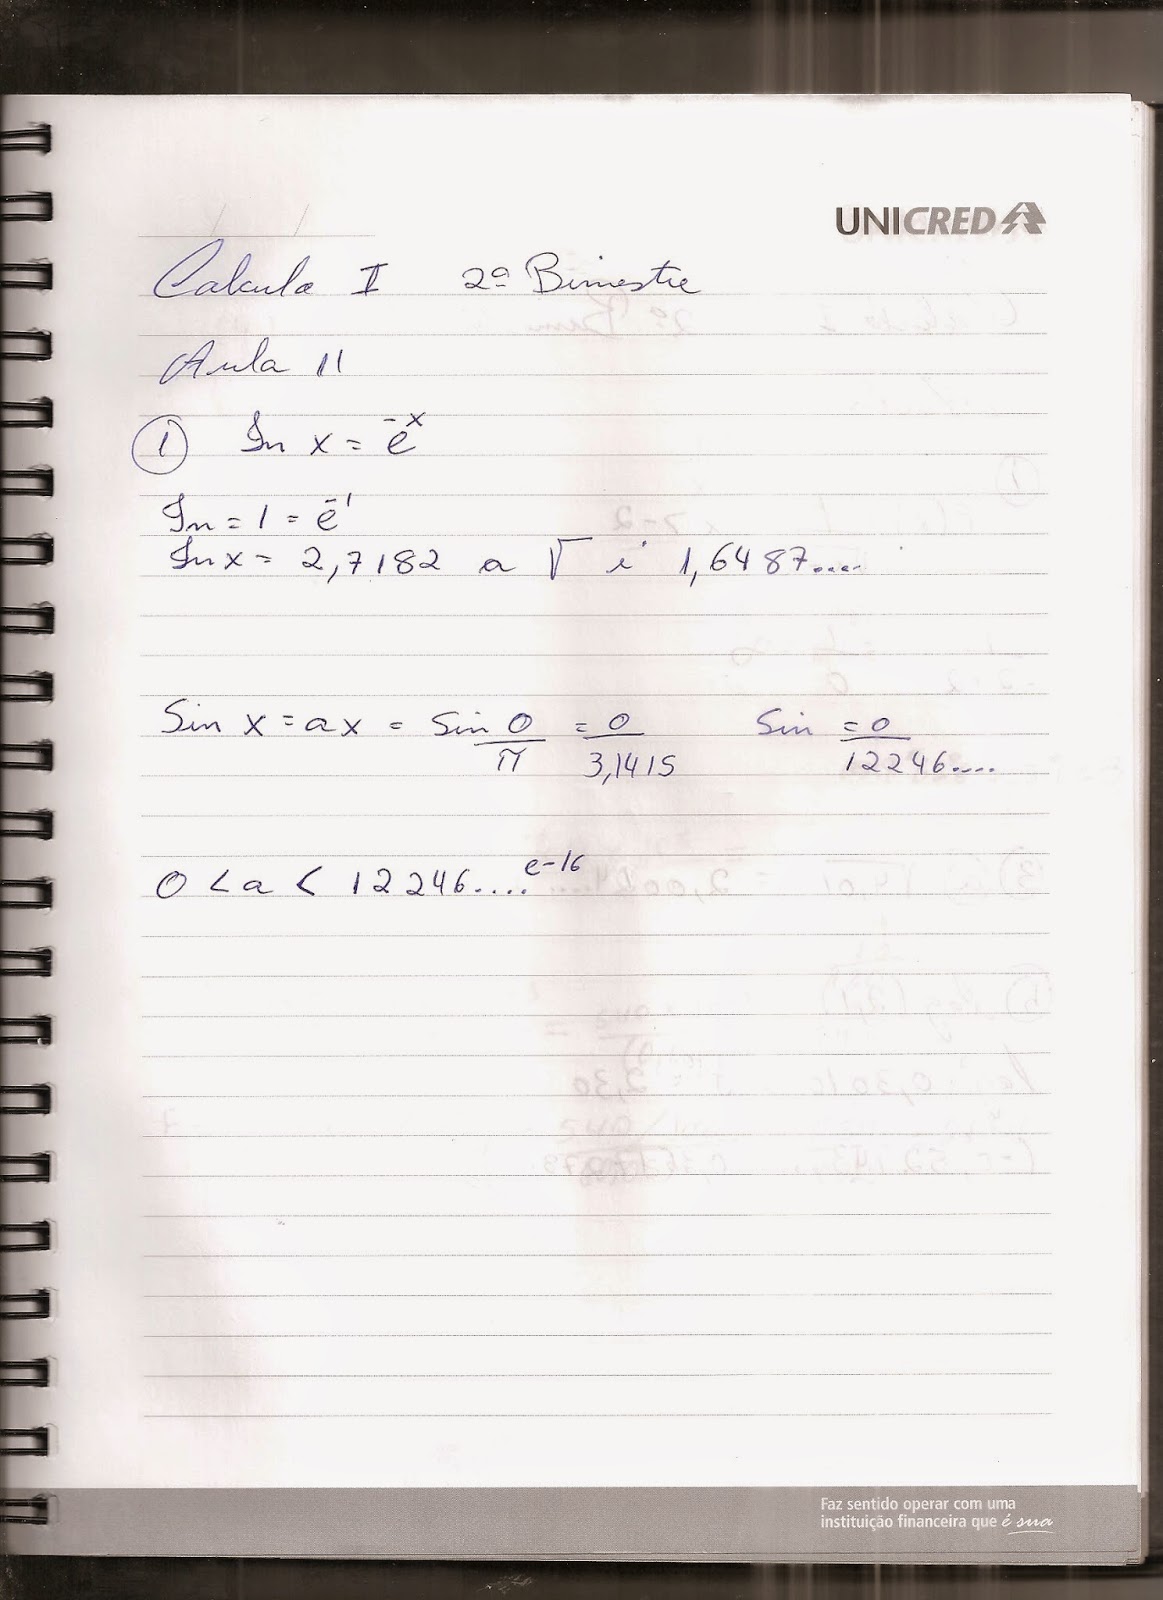 UNICRED
Calculo I 2º Bimestre
Aula 11
1 ln x = e^-x
ln = 1 = e^-1
ln x = 2,7182 a √ i 1,6487....
Sin x = ax = Sin 0/π = 0/3,1415 Sin = 0/12246....
0 < a < 12246....e-16
Faz sentido operar com uma
instituição financeira que é sua